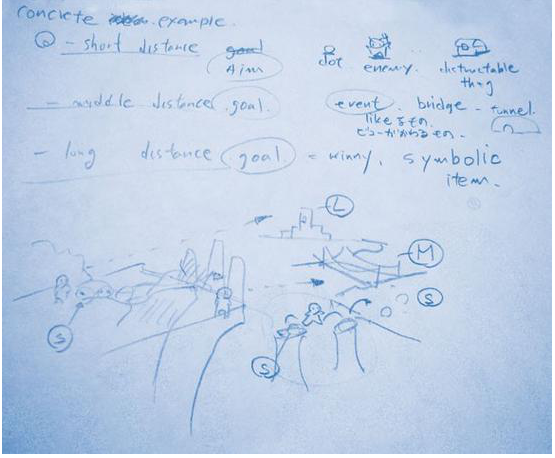 concrete example.
- short distance Aim dot enemy. destructable thing
- middle distance goal. event. bridge - tunnel.
likeるもの
ビューがかわるもの.
- long distance goal = winny, symbolic item.
L
M
S
S
S